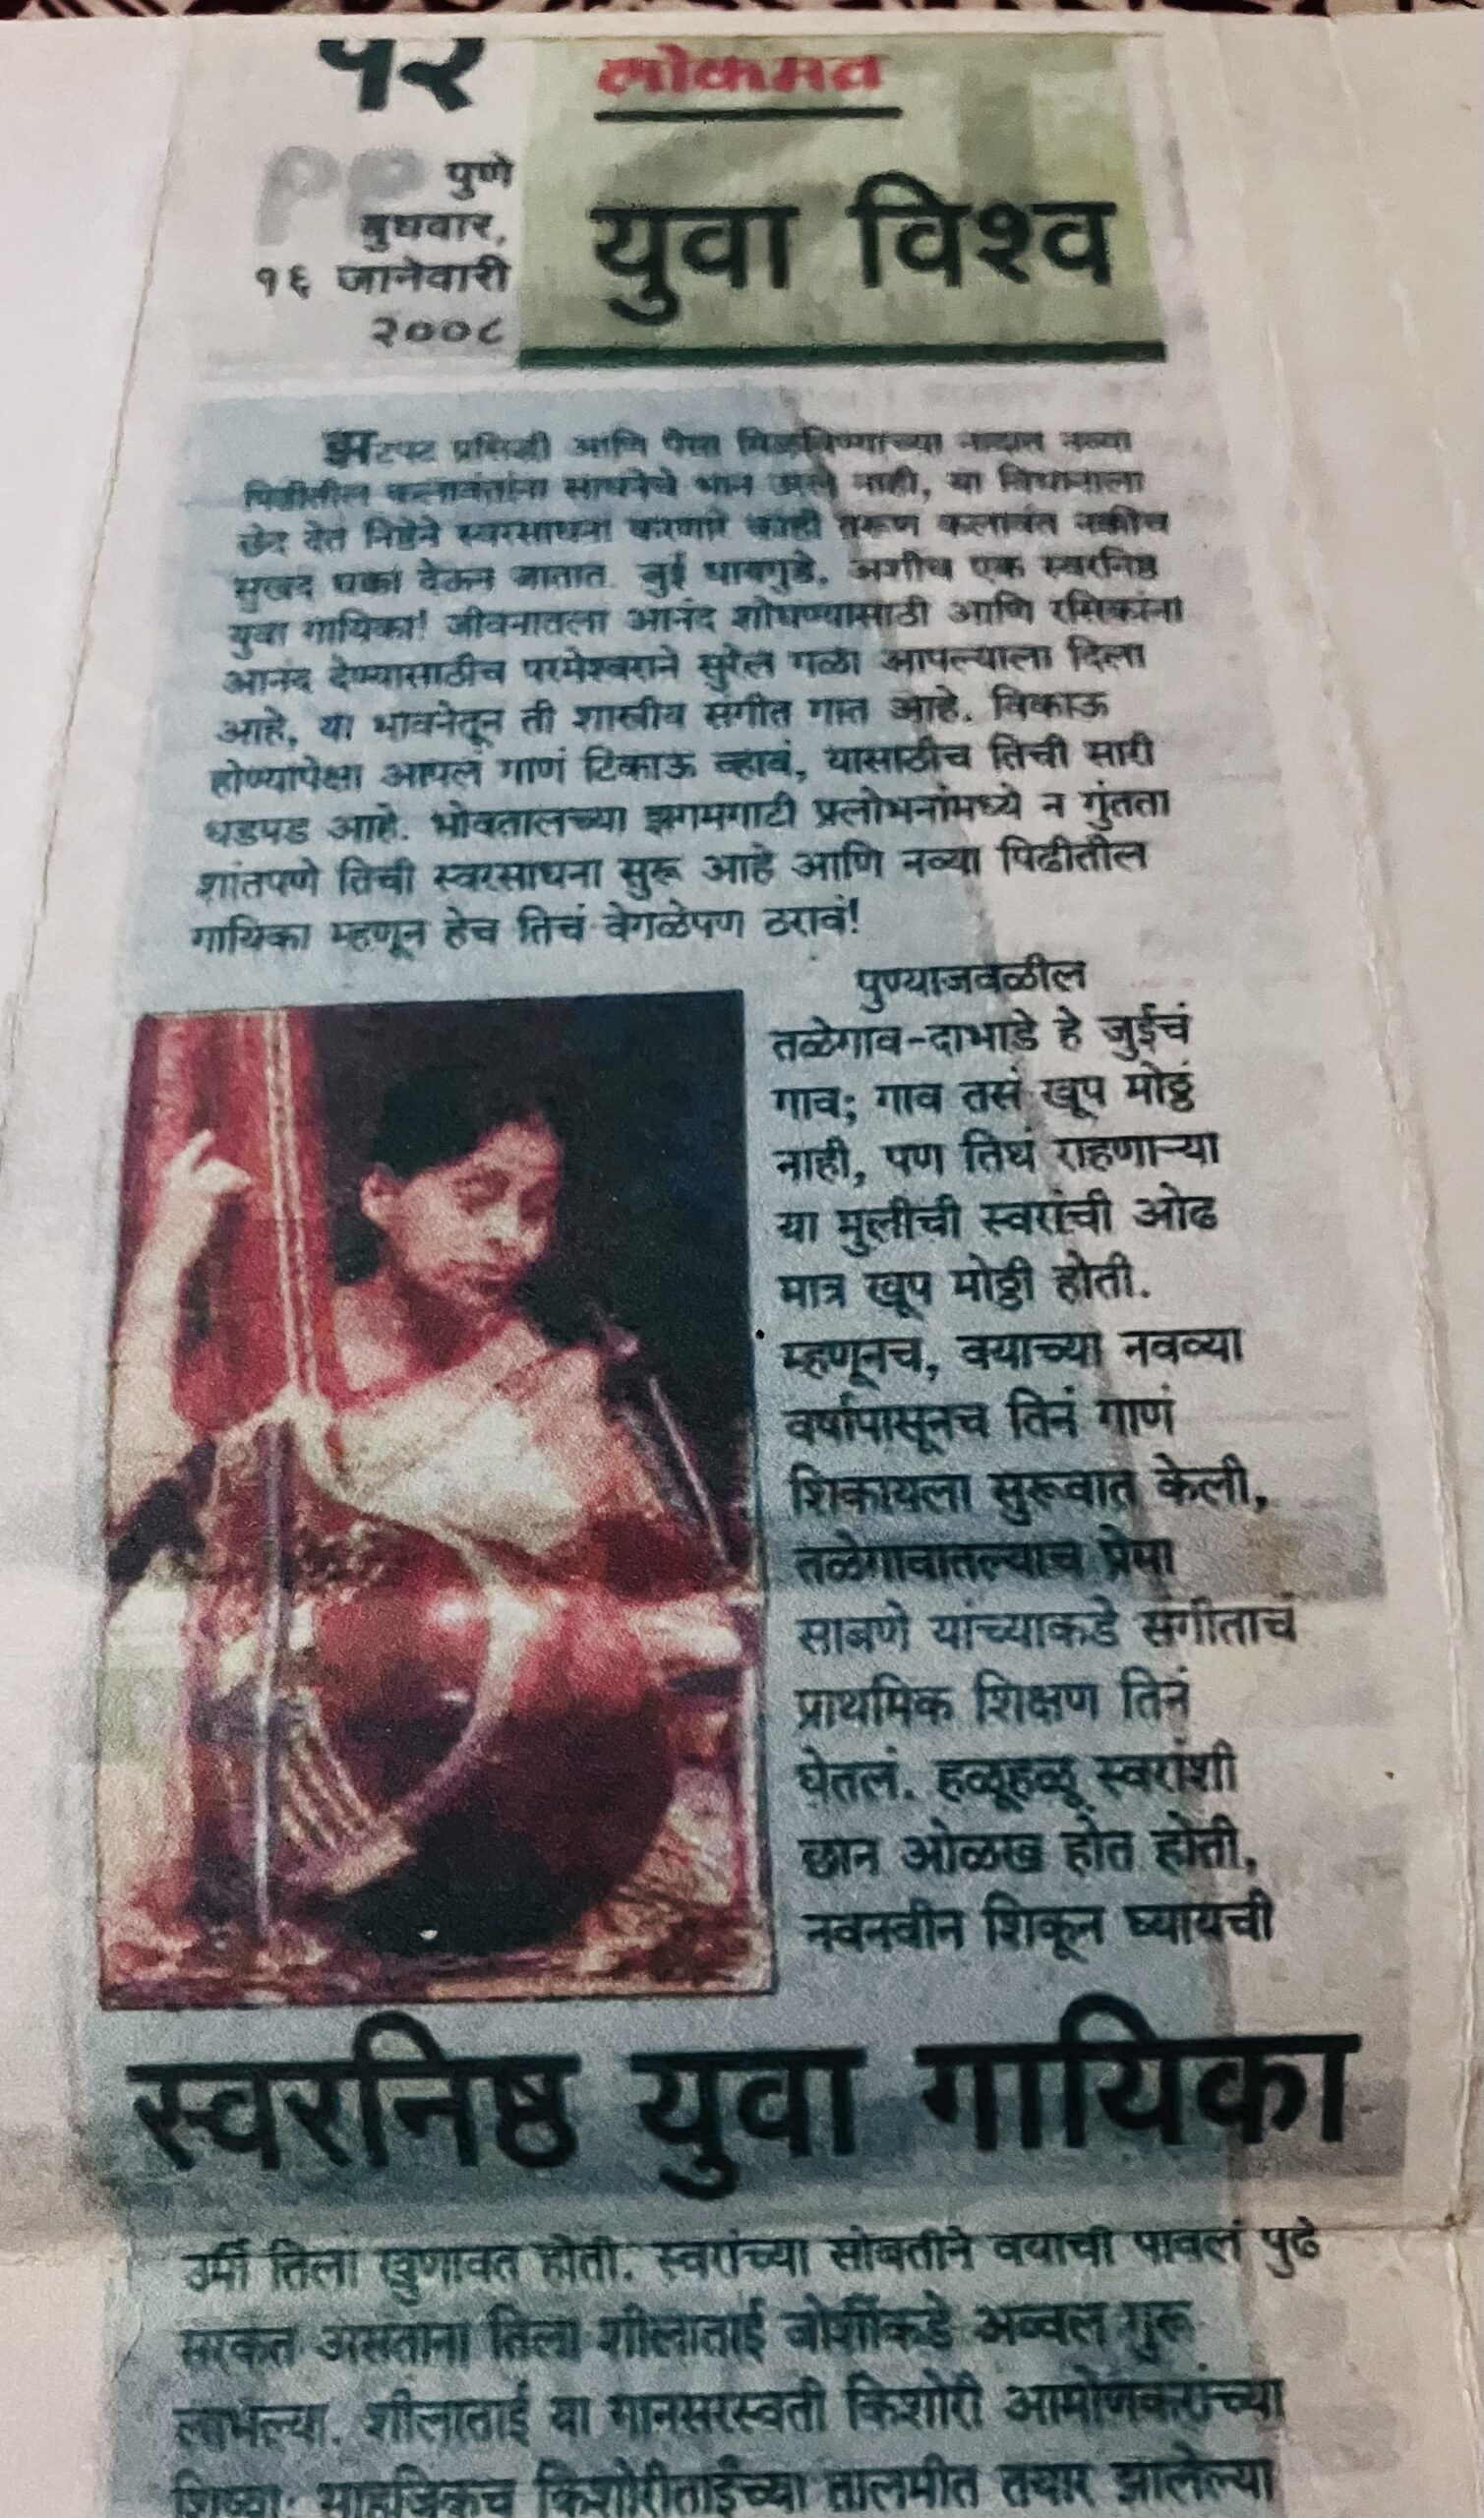 १२
लोकमत
पुणे
बुधवार,
१६ जानेवारी
२००८
युवा विश्व
झटपट प्रसिद्धी आणि पैसा मिळविण्याच्या नादात नव्या
पिढीतील कलावंतांना साधनेचे भान उरले नाही, या विधानाला
छेद देत निष्ठेने स्वरसाधना करणारे काही तरूण कलावंत नक्कीच
सुखद धक्का देऊन जातात. जुई धायगुडे, अशीच एक स्वरनिष्ठ
युवा गायिका! जीवनातला आनंद शोधण्यासाठी आणि रसिकांना
आनंद देण्यासाठीच परमेश्वराने सुरेल गळा आपल्याला दिला
आहे, या भावनेतून ती शास्त्रीय संगीत गात आहे. विकाऊ
होण्यापेक्षा आपलं गाणं टिकाऊ व्हावं, यासाठीच तिची सारी
धडपड आहे. भोवतालच्या झगमगाटी प्रलोभनांमध्ये न गुंतता
शांतपणे तिची स्वरसाधना सुरू आहे आणि नव्या पिढीतील
गायिका म्हणून हेच तिचं वेगळेपण ठरावं!
पुण्याजवळील
तळेगाव-दाभाडे हे जुईचं
गाव; गाव तसं खूप मोठ्ठं
नाही, पण तिथं राहणाऱ्या
या मुलीची स्वरांची ओढ
मात्र खूप मोठ्ठी होती.
म्हणूनच, वयाच्या नवव्या
वर्षापासूनच तिनं गाणं
शिकायला सुरूवात केली,
तळेगावातल्याच प्रेमा
साबणे यांच्याकडे संगीताचं
प्राथमिक शिक्षण तिनं
घेतलं. हळूहळू स्वरांशी
छान ओळख होत होती,
नवनवीन शिकून घ्यायची
स्वरनिष्ठ युवा गायिका
उर्मी तिला खुणावत होती. स्वरांच्या सोबतीने वयाची पावलं पुढे
सरकत असताना तिला शीलाताई जोशींकडे अव्वल गुरू
लाभल्या. शीलाताई या गानसरस्वती किशोरी आमोणकरांच्या
शिष्या; साहजिकच किशोरीताईंच्या तालमीत तयार झालेल्या